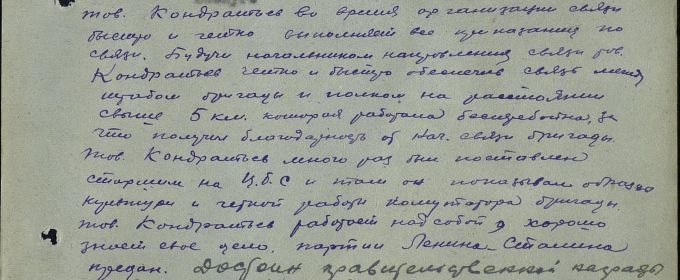 тов. Кондратьев во время организации связи
быстро и четко выполняет все указания по
связи. Будучи начальником направления связи тов.
Кондратьев четко и быстро обеспечив связь между
штабом бригады и полком на расстоянии
свыше 5 км. которая работала бесперебойно, за
что получил благодарность от Нач. связи бригады.
Тов. Кондратьев много раз был поставлен
старшим на Ц.Б.С и там он показывал образец
культуры и четкой работы комутатора бригады.
Тов. Кондратьев работает над собой и хорошо
знает свое дело, партии Ленина-Сталина
предан. Достоин правительственной награды